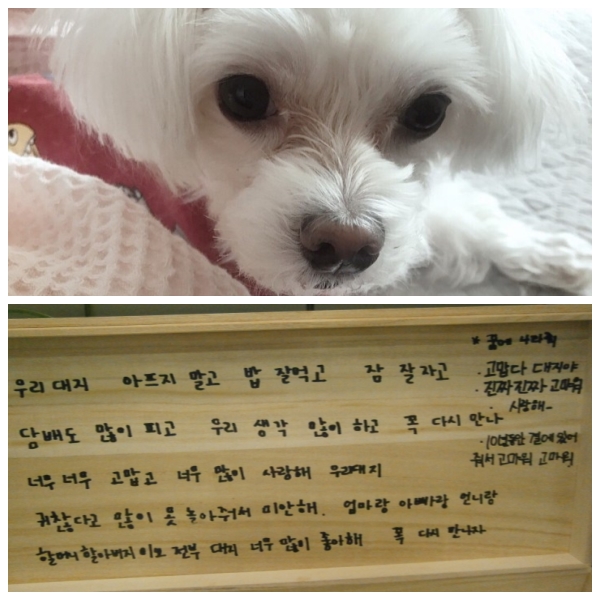 우리 대지 아프지 말고 밥 잘먹고 잠 잘자고
담배도 많이 피고 우리 생각 많이 하고 꼭 다시 만나
너무너무 고맙고 너무 많이 사랑해 우리대지
귀찮다고 많이 못 놀아줘서 미안해. 엄마랑 아빠랑 언니랑
할머니 할아버지 이모 전부 대지 너무 많이 좋아해 꼭 다시 만나자
* 꿈에 나와줘
· 고맙다 대지야
· 진짜진짜 고마워
· 사랑해~
· 10년동안 곁에 있어
줘서 고마워 고마워